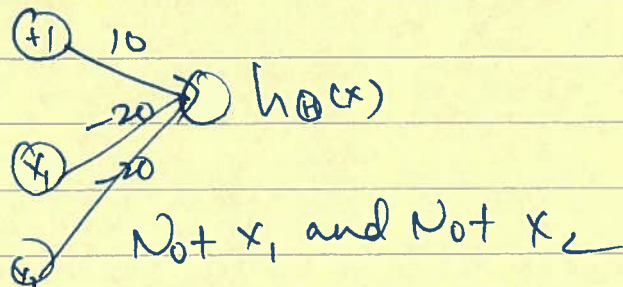 +1 10
-20 hⒽ(x)
x₁ -20
Not x₁ and Not x₂
x₂